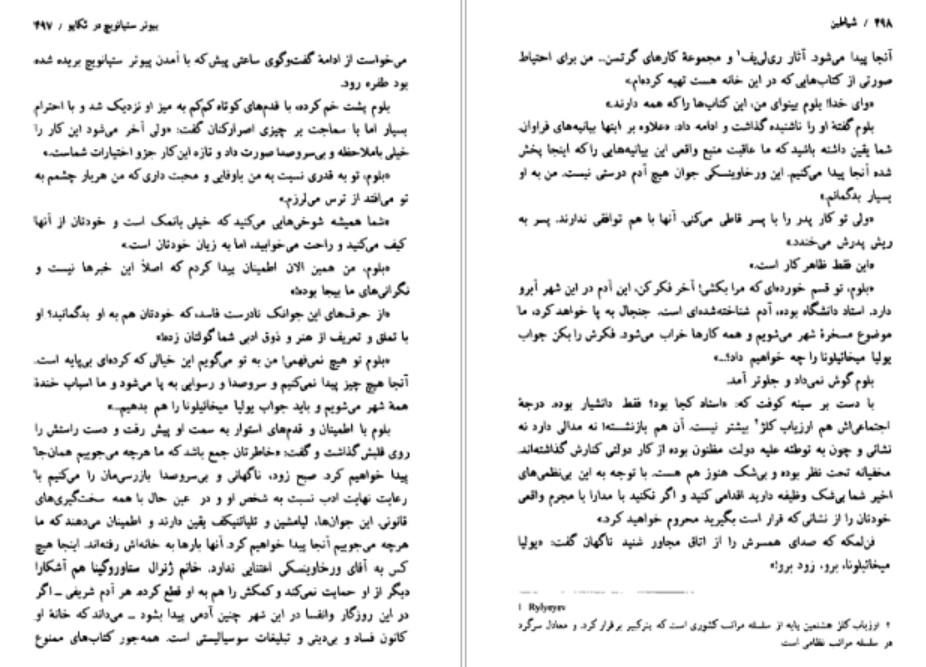 پیوتر ستپانویچ در تکاپو / ۴۹۷
می‌خواست از ادامهٔ گفت‌وگوی ساعتی پیش که با آمدن پیوتر ستپانویچ بریده شده
بود طفره رود.
بلوم پشت خم کرده، با قدم‌های کوتاه کم‌کم به میز او نزدیک شد و با احترام
بسیار اما با سماجت بر چیزی اصرارکنان گفت: «ولی آخر می‌شود این کار را
خیلی باملاحظه و بی‌سروصدا صورت داد و تازه این کار جزو اختیارات شماست.»
«بلوم، تو به قدری نسبت به من باوفایی و محبت داری که من هربار چشمم به
تو می‌افتد از ترس می‌لرزم.»
«شما همیشه شوخی‌هایی می‌کنید که خیلی بانمک است و خودتان از آنها
کیف می‌کنید و راحت می‌خوابید، اما به زیان خودتان است.»
«بلوم، من همین الان اطمینان پیدا کردم که اصلاً این خبرها نیست و
نگرانی‌های ما بیجا بوده!»
«از حرف‌های این جوانک نادرست فاسد، که خودتان هم به او بدگمانید؟ او
با تملق و تعریف از هنر و ذوق ادبی شما گولتان زده!»
«بلوم تو هیچ نمی‌فهمی! من به تو می‌گویم این خیالی که کرده‌ای بی‌پایه است.
آنجا هیچ چیز پیدا نمی‌کنیم و سروصدا و رسوایی به پا می‌شود و ما اسباب خندهٔ
همهٔ شهر می‌شویم و باید جواب یولیا میخائیلونا را هم بدهیم...»
بلوم با اطمینان و قدم‌های استوار به سمت او پیش رفت و دست راستش را
روی قلبش گذاشت و گفت: «خاطرتان جمع باشد که ما هرچه می‌جوییم همان‌جا
پیدا خواهیم کرد. صبح زود، ناگهانی و بی‌سروصدا بازرسی‌مان را می‌کنیم با
رعایت نهایت ادب نسبت به شخص او و در عین حال با همه سخت‌گیری‌های
قانونی. این جوان‌ها، لیامشین و تلیاتنیکف یقین دارند و اطمینان می‌دهند که ما
هرچه می‌جوییم آنجا پیدا خواهیم کرد. آنها بارها به خانه‌اش رفته‌اند. اینجا هیچ
کس به آقای ورخاوینسکی اعتنایی ندارد. خانم ژنرال ستاوروگینا هم آشکارا
دیگر از او حمایت نمی‌کند و کمکش را هم به او قطع کرده. هر آدم شریفی ــ اگر
در این روزگار وانفسا در این شهر چنین آدمی پیدا بشود ــ می‌داند که خانهٔ او
کانون فساد و بی‌دینی و تبلیغات سوسیالیستی است. همه‌جور کتاب‌های ممنوع
۴۹۸ / شیاطین
آنجا پیدا می‌شود. آثار ری‌لی‌یف۱ و مجموعهٔ کارهای گرتسن... من برای احتیاط
صورتی از کتاب‌هایی که در این خانه هست تهیه کرده‌ام.»
«وای خدا! بلوم بینوای من، این کتاب‌ها را که همه دارند.»
بلوم گفتهٔ او را ناشنیده گذاشت و ادامه داد: «علاوه بر اینها بیانیه‌های فراوان.
شما یقین داشته باشید که ما عاقبت منبع واقعی این بیانیه‌هایی را که اینجا پخش
شده آنجا پیدا می‌کنیم. این ورخاوینسکی جوان هیچ آدم دوستی نیست. من به او
بسیار بدگمانم.»
«ولی تو کار پدر را با پسر قاطی می‌کنی. آنها با هم توافقی ندارند. پسر به
ریش پدرش می‌خندد.»
«این فقط ظاهر کار است.»
«بلوم، تو قسم خورده‌ای که مرا بکشی! آخر فکر کن، این آدم در این شهر آبرو
دارد. استاد دانشگاه بوده، آدم شناخته‌شده‌ای است. جنجال به پا خواهد کرد، ما
موضوع مسخرهٔ شهر می‌شویم و همه کارها خراب می‌شود. فکرش را بکن جواب
یولیا میخائیلونا را چه خواهیم داد؟...»
بلوم گوش نمی‌داد و جلوتر آمد.
با دست بر سینه کوفت که: «استاد کجا بود؟ فقط دانشیار بوده. درجهٔ
اجتماعی‌اش هم ارزیاب کلژ۲ بیشتر نیست. آن هم بازنشسته! نه مدالی دارد نه
نشانی و چون به توطئه علیه دولت مظنون بوده از کار دولتی کنارش گذاشته‌اند.
مخفیانه تحت نظر بوده و بی‌شک هنوز هم هست. با توجه به این بی‌نظمی‌های
اخیر شما بی‌شک وظیفه دارید اقدامی کنید و اگر نکنید با مدارا با مجرم واقعی
خودتان را از نشانی که قرار است بگیرید محروم خواهید کرد.»
فن‌لمکه که صدای همسرش را از اتاق مجاور شنید ناگهان گفت: «یولیا
میخائیلونا. برو، زود برو!»
1 Rylyeyev
۲ ارزیاب کلژ هشتمین پایه از سلسله مراتب کشوری است که پترکبیر برقرار کرد. و معادل سرگرد
در سلسله مراتب نظامی است